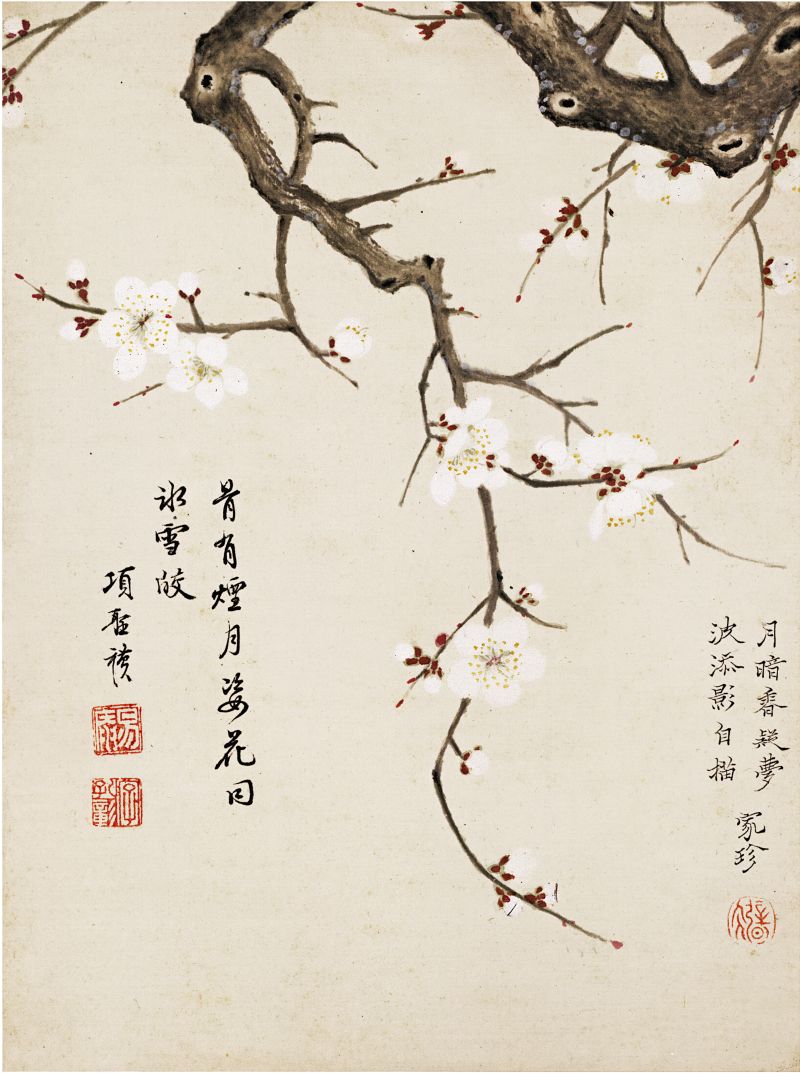 月暗香凝夢
波添影自描
家珍
骨有煙月姿花同
冰雪皎
項聖謨